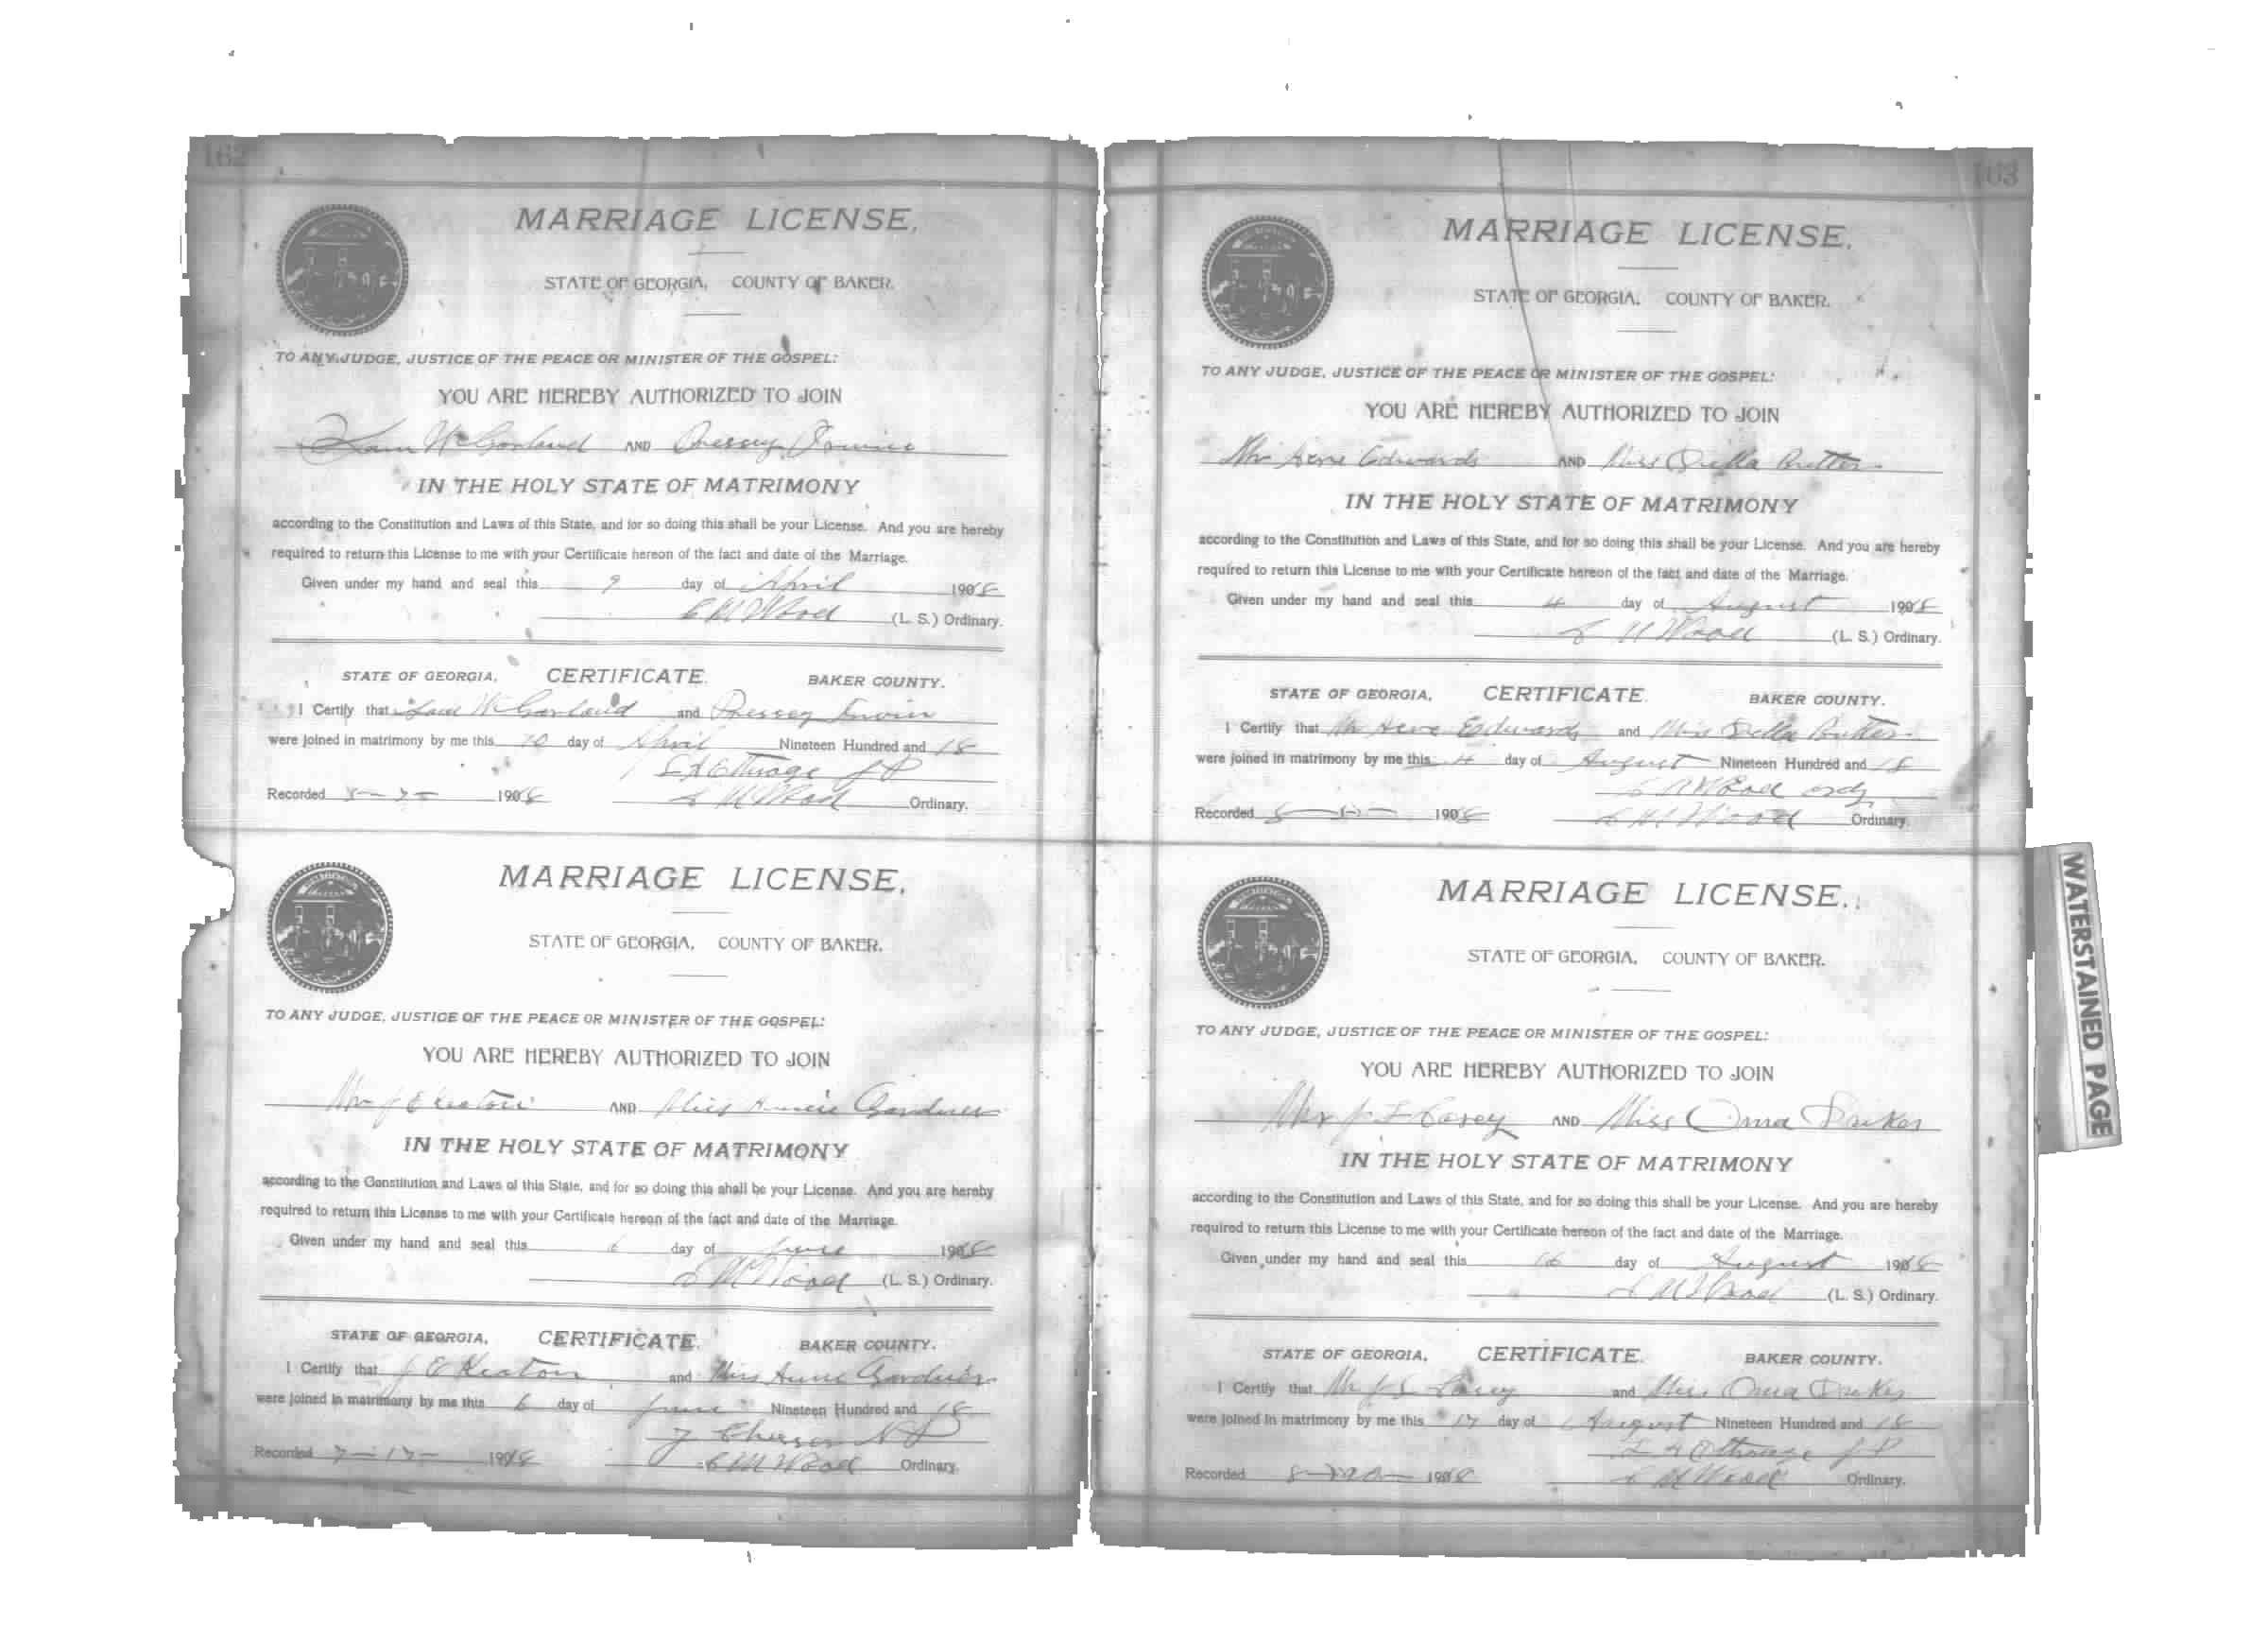 162
MARRIAGE LICENSE.
STATE OF GEORGIA, COUNTY OF BAKER.
TO ANY JUDGE, JUSTICE OF THE PEACE OR MINISTER OF THE GOSPEL:
YOU ARE HEREBY AUTHORIZED TO JOIN
AND
IN THE HOLY STATE OF MATRIMONY
according to the Constitution and Laws of this State, and for so doing this shall be your License. And you are hereby
required to return this License to me with your Certificate hereon of the fact and date of the Marriage.
Given under my hand and seal this 9 day of April 1908
Wood (L. S.) Ordinary.
STATE OF GEORGIA, CERTIFICATE. BAKER COUNTY.
I Certify that and
were joined in matrimony by me this 10 day of April Nineteen Hundred and 18
J P
Recorded 190 Wood Ordinary.
MARRIAGE LICENSE.
STATE OF GEORGIA, COUNTY OF BAKER.
TO ANY JUDGE, JUSTICE OF THE PEACE OR MINISTER OF THE GOSPEL:
YOU ARE HEREBY AUTHORIZED TO JOIN
Mr J E Keaton AND Miss Annie Gardner
IN THE HOLY STATE OF MATRIMONY
according to the Constitution and Laws of this State, and for so doing this shall be your License. And you are hereby
required to return this License to me with your Certificate hereon of the fact and date of the Marriage.
Given under my hand and seal this 6 day of June 19
Wood (L. S.) Ordinary.
STATE OF GEORGIA, CERTIFICATE. BAKER COUNTY.
I Certify that J E Keaton and Miss Annie Gardner
were joined in matrimony by me this 6 day of June Nineteen Hundred and 18
N P
Recorded 7-17- 19 Wood Ordinary.
163
MARRIAGE LICENSE.
STATE OF GEORGIA, COUNTY OF BAKER.
TO ANY JUDGE, JUSTICE OF THE PEACE OR MINISTER OF THE GOSPEL:
YOU ARE HEREBY AUTHORIZED TO JOIN
Mr Edwards AND Miss Della
IN THE HOLY STATE OF MATRIMONY
according to the Constitution and Laws of this State, and for so doing this shall be your License. And you are hereby
required to return this License to me with your Certificate hereon of the fact and date of the Marriage.
Given under my hand and seal this 4 day of August 19
Wood (L. S.) Ordinary.
STATE OF GEORGIA, CERTIFICATE. BAKER COUNTY.
I Certify that Mr Edwards and Miss Della
were joined in matrimony by me this 4 day of August Nineteen Hundred and 18
Wood ordy
Recorded 190 Wood Ordinary.
MARRIAGE LICENSE.
STATE OF GEORGIA, COUNTY OF BAKER.
TO ANY JUDGE, JUSTICE OF THE PEACE OR MINISTER OF THE GOSPEL:
YOU ARE HEREBY AUTHORIZED TO JOIN
Mr AND Miss Oma
IN THE HOLY STATE OF MATRIMONY
according to the Constitution and Laws of this State, and for so doing this shall be your License. And you are hereby
required to return this License to me with your Certificate hereon of the fact and date of the Marriage.
Given under my hand and seal this 16 day of August 19
Wood (L. S.) Ordinary.
STATE OF GEORGIA, CERTIFICATE. BAKER COUNTY.
I Certify that Mr and Miss Oma
were joined in matrimony by me this 17 day of August Nineteen Hundred and 18
J P
Recorded 19 Wood Ordinary.
WATERSTAINED PAGE